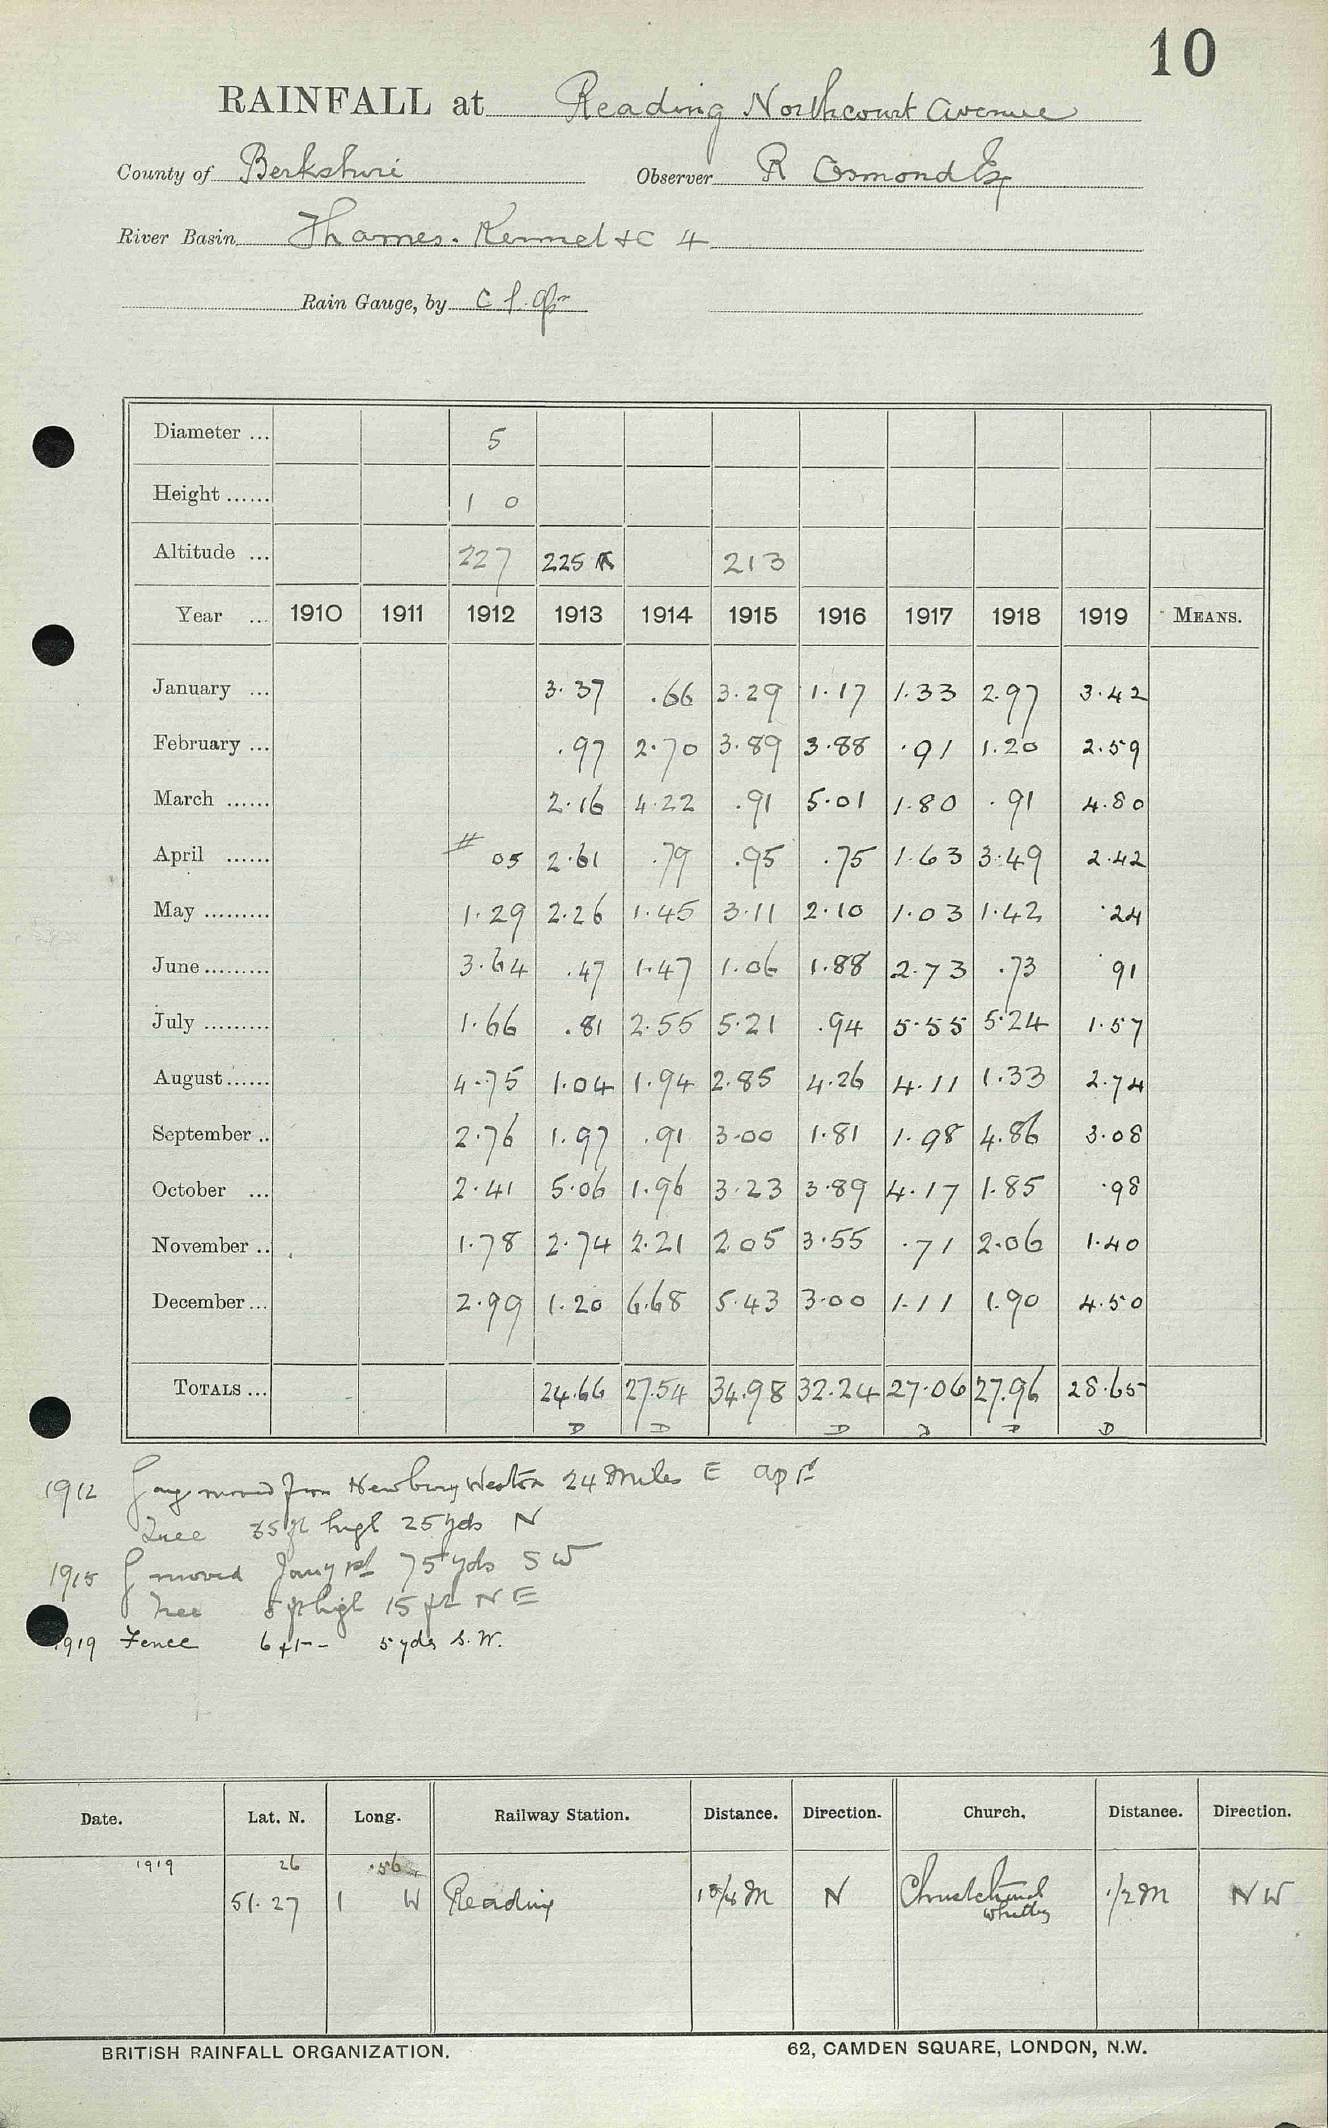 10
RAINFALL at Reading Northcourt Avenue
County of Berkshire Observer R Osmond Esq
River Basin Thames. Kennet &c 4
Rain Gauge, by
Diameter ... 5
Height ...... 1 0
Altitude ... 227 225 213
Year ... 1910 1911 1912 1913 1914 1915 1916 1917 1918 1919 MEANS.
January ... 3.37 .66 3.29 1.17 1.33 2.97 3.42
February ... .97 2.70 3.89 3.88 .91 1.20 2.59
March ...... 2.16 4.22 .91 5.01 1.80 .91 4.80
April ...... # 05 2.61 .79 .95 .75 1.63 3.49 2.42
May ......... 1.29 2.26 1.45 3.11 2.10 1.03 1.42 .24
June ......... 3.64 .47 1.47 1.06 1.88 2.73 .73 .91
July ......... 1.66 .81 2.55 5.21 .94 5.55 5.24 1.57
August ...... 4.75 1.04 1.94 2.85 4.26 4.11 1.33 2.74
September .. 2.76 1.97 .91 3.00 1.81 1.98 4.86 3.08
October ... 2.41 5.06 1.96 3.23 3.89 4.17 1.85 .98
November .. 1.78 2.74 2.21 2.05 3.55 .71 2.06 1.40
December ... 2.99 1.20 6.68 5.43 3.00 1.11 1.90 4.50
TOTALS ... 24.66 27.54 34.98 32.24 27.06 27.96 28.65
D D D D D D
1912 moved from Newbury Weston 24 Miles E
Tree 35 ft high 25 yds N
1915 G moved Jany 1st 75 yds SW
Tree 5 ft high 15 ft NE
1919 Fence 6 ft 5 yds S.W.
Date. Lat. N. Long. Railway Station. Distance. Direction. Church. Distance. Direction.
1919 26 .56
51.27 1 W Reading 1 3/4 M N Christchurch 1/2 M NW
Whitley
BRITISH RAINFALL ORGANIZATION. 62, CAMDEN SQUARE, LONDON, N.W.